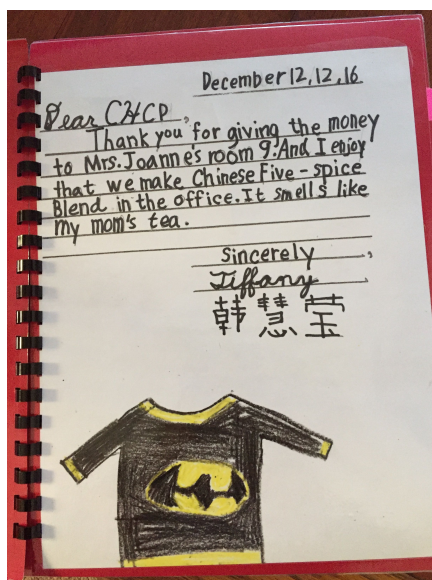 December 12, 12, 16
Dear CHCP,
Thank you for giving the money
to Mrs. Joanne's room 9. And I enjoy
that we make Chinese Five-spice
Blend in the office. It smells like
my mom's tea.
Sincerely,
Tiffany
韩慧莹